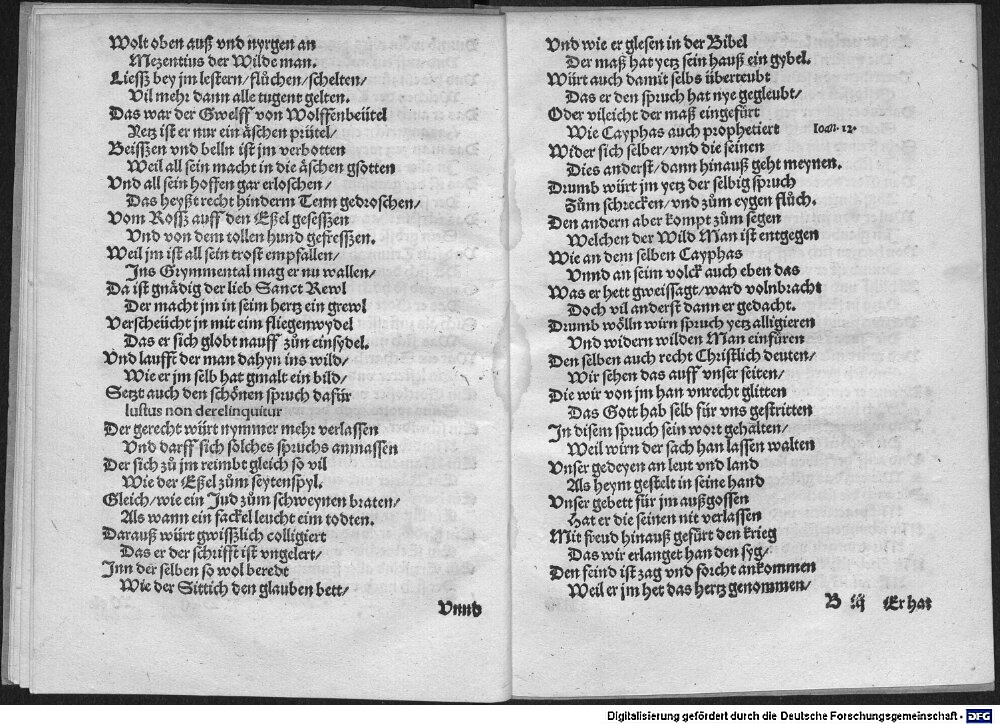 Wolt oben auß vnd nyrgen an
Mezentius der Wilde man.
Liessz bey jm lestern/ flůchen/ schelten/
Vil mehr dann alle tugent gelten.
Das war der Gwelff von Wolffenbeütel
Netz ist er nur ein äschen prütel/
Beisszen vnd belln ist jm verbotten
Weil all sein macht in die äschen gsotten
Vnd all sein hoffen gar erloschen/
Das heyßt recht hinderm Tenn gedroschen/
Vom Rossz auff den Eßel gesesszen
Vnd von dem tollen hund gefresszen.
Weil jm ist all sein trost empfallen/
Ins Grymmental mag er nu wallen/
Da ist gnädig der lieb Sanct Rewl
Der macht jm in seim hertz ein grewl
Verscheücht jn mit eim fliegenwydel
Das er sich globt nauff zům einsydel.
Vnd laufft der man dahyn ins wild/
Wie er jm selb hat gmalt ein bild/
Setzt auch den schönen spruch dafür
Iustus non derelinquitur
Der gerecht würt nymmer mehr verlassen
Vnd darff sich solches spruchs anmassen
Der sich zů jm reimbt gleich so vil
Wie der Eßel zům seytenspyl.
Gleich/ wie ein Jud zům schweynen braten/
Als wann ein fackel leucht eim todten.
Darauß würt gwisszlich colligiert
Das er der schrifft ist vngelert/
Inn der selben so wol beredt
Wie der Sittich den glauben bett/
Vnnd
Vnd wie er glesen in der Bibel
Der maß hat yetz sein hauß ein gybel.
Würt auch damit selbs überteubt
Das er den spruch hat nye gegleubt/
Oder vileicht der maß eingefürt
Wie Cayphas auch prophetiert
Ioan. 12.
Wider sich selber/ vnd die seinen
Dies anderst/ dann hinauß geht meynen.
Drumb würt jm yetz der selbig spruch
Zům schrecken/ vnd zům eygen flůch.
Den andern aber kompt zům segen
Welchen der Wild Man ist entgegen
Wie an dem selben Cayphas
Vnnd an seim volck auch eben das
Was er hett gweissagt/ ward volnbracht
Doch vil anderst dann er gedacht.
Drumb wölln wirn spruch yetz alligieren
Vnd widern wilden Man einfüren
Den selben auch recht Christlich deuten/
Wir sehen das auff vnser seiten/
Die wir von jm han vnrecht glitten
Das Gott hab selb für vns gestritten
In disem spruch sein wort gehalten/
Weil wirn der sach han lassen walten
Vnser gedeyen an leut vnd land
Als heym gestelt in seine hand
Vnser gebett für jm außgossen
Hat er die seinen nit verlassen
Mit freud hinauß gefürt den krieg
Das wir erlanget han den syg/
Den feind ist zag vnd forcht ankommen
Weil er jm het das hertz genommen/
B iij Er hat
Digitalisierung gefördert durch die Deutsche Forschungsgemeinschaft - DFG